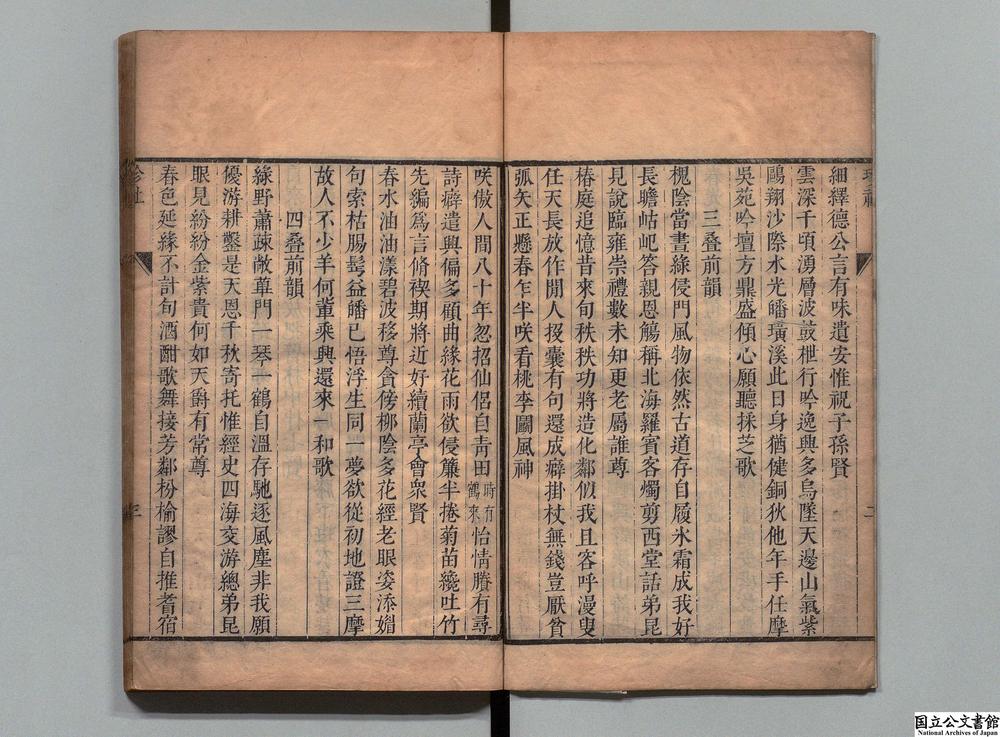 細繹德公言有味遺安惟祝子孫賢
雲深千頃湧層波鼓枻行吟逸興多烏墜天邊山氣紫
鷗翔沙際水光皤璜溪此日身猶健銅狄他年手任摩
吳苑吟壇方鼎盛傾心願聽採芝歌
三叠前韻
槐陰當晝綠侵門風物依然古道存自履氷霜成我好
長瞻岵屺答親恩觴稱北海羅賓客燭剪西堂話弟昆
見說臨雍崇禮數未知更老屬誰尊
椿庭追憶昔來旬秩秩功將造化鄰似我且容呼漫叟
任天長放作閒人投囊有句還成癖掛杖無錢豈厭貧
弧矢正懸春乍半咲看桃李鬭風神
咲傲人間八十年忽招仙侶自靑田時有鶴來怡情賸有尋
詩癖遣興偏多顧曲緣花雨欲侵簾半捲菊苗纔吐竹
先編爲言脩禊期將近好續蘭亭會衆賢
春水油油漾碧波移尊貪傍柳陰多花經老眼姿添媚
句索枯腸髩益皤已悟浮生同一夢欲從初地證三摩
故人不少羊何輩乘興還來一和歌
四叠前韻
綠野蕭疎敞蓽門一琴一鶴自溫存馳逐風塵非我願
優游耕鑿是天恩千秋寄托惟經史四海交游總弟昆
眼見紛紛金紫貴何如天爵有常尊
春色延緣不計旬酒酣歌舞接芳鄰枌榆謬自推耆宿
二
三
国立公文書館
National Archives of Japan